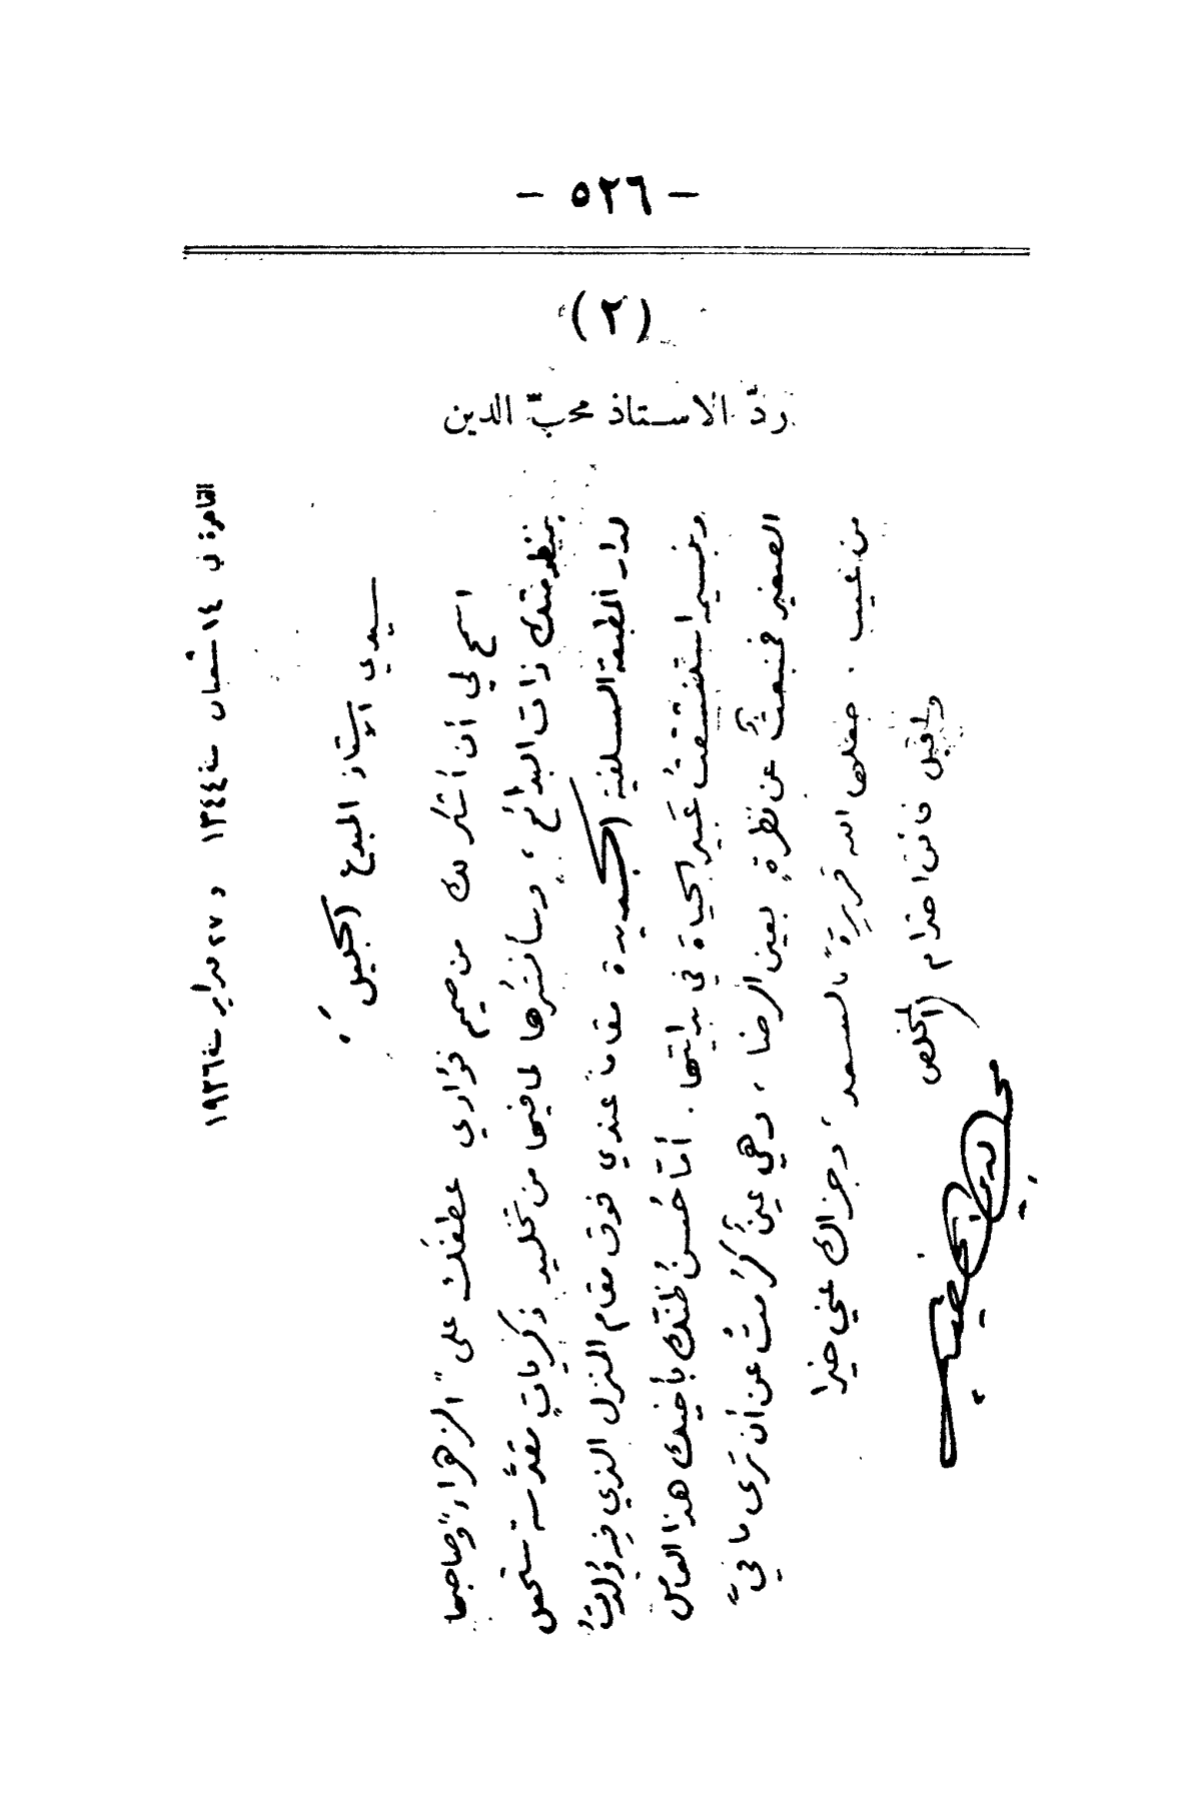 - ٥٢٦ -
(٢)
ردّ الاستاذ محبّ الدين
القاهرة في ١٤ شعبان سنة ١٣٤٤ و ٢٧ فبراير سنة ١٩٢٦
سيدي الاستاذ المبدع الجليل
اسمح لي أن أشكر لك من صميم فؤادي عطفك على "الزهراء" وصاحبها
بمنظومتك ذات البدائع، وسأنشرها لما فيها من تخليد ذكرياتٍ مقدّسة ستحمل
لدار المطبعة السلفية الجديدة مقاماً عندي فوق مقام المنزل الذي فيه وُلدتُ
ونسيم استنشقتُ عبير الحياة في بدايتها. أمّا حُسنُ ظنّك بأخيك هذا العاجز
الصغير فمنبعثٌ عن نظرةٍ بعين الرضا، وهي عينٌ كَرُمتْ عن أن ترى ما فيَّ
من عيب. جعلها الله قريرةً بالسعد، وجزاك عني خيرا
واقبل فائق احترام
المخلص
محب الدين الخطيب